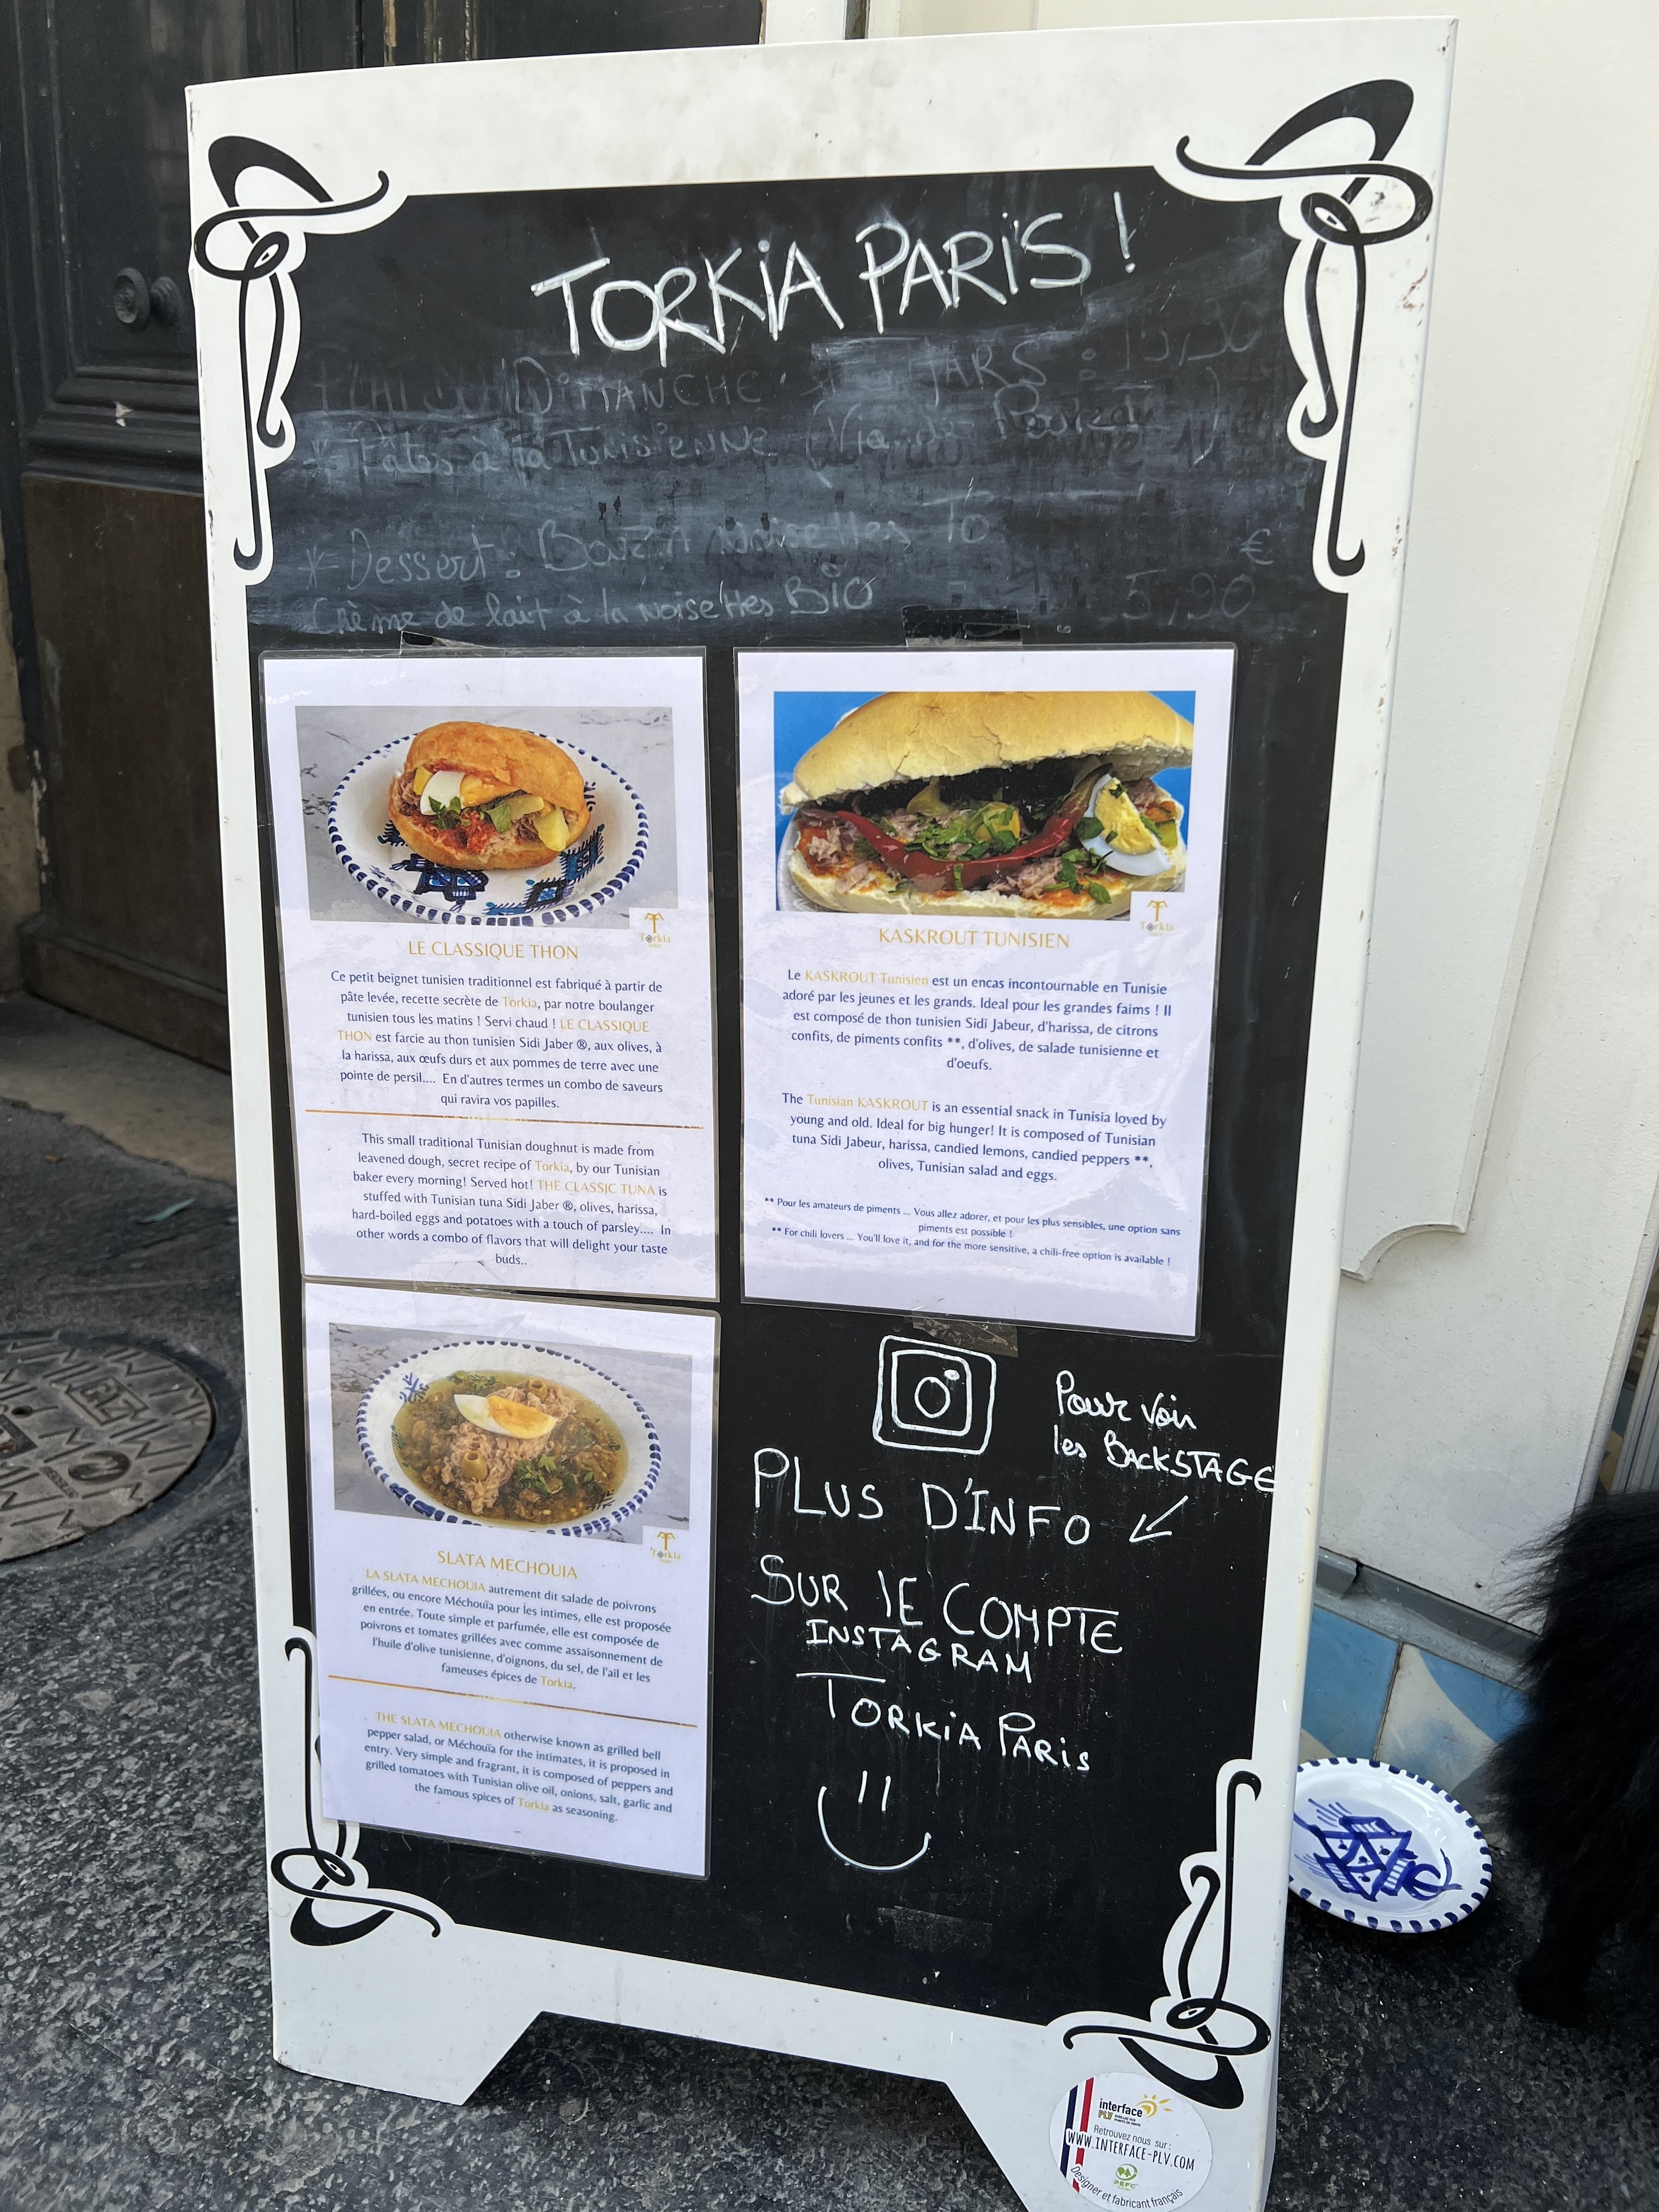 TORKiA PARiS !
DiMANCHE
* Pâtes à la Tunisienne
* Dessert :
Crème de lait à la Noisettes BiO 5,90
€
Torkia
LE CLASSIQUE THON
Ce petit beignet tunisien traditionnel est fabriqué à partir de
pâte levée, recette secrète de Torkia, par notre boulanger
tunisien tous les matins ! Servi chaud ! LE CLASSIQUE
THON est farcie au thon tunisien Sidi Jaber ®, aux olives, à
la harissa, aux œufs durs et aux pommes de terre avec une
pointe de persil.... En d'autres termes un combo de saveurs
qui ravira vos papilles.
This small traditional Tunisian doughnut is made from
leavened dough, secret recipe of Torkia, by our Tunisian
baker every morning! Served hot! THE CLASSIC TUNA is
stuffed with Tunisian tuna Sidi Jaber ®, olives, harissa,
hard-boiled eggs and potatoes with a touch of parsley.... In
other words a combo of flavors that will delight your taste
buds..
Torkia
KASKROUT TUNISIEN
Le KASKROUT Tunisien est un encas incontournable en Tunisie
adoré par les jeunes et les grands. Ideal pour les grandes faims ! Il
est composé de thon tunisien Sidi Jabeur, d'harissa, de citrons
confits, de piments confits **, d'olives, de salade tunisienne et
d'oeufs.
The Tunisian KASKROUT is an essential snack in Tunisia loved by
young and old. Ideal for big hunger! It is composed of Tunisian
tuna Sidi Jabeur, harissa, candied lemons, candied peppers **,
olives, Tunisian salad and eggs.
** Pour les amateurs de piments ... Vous allez adorer, et pour les plus sensibles, une option sans
piments est possible !
** For chili lovers ... You'll love it, and for the more sensitive, a chili-free option is available !
Torkia
SLATA MECHOUIA
LA SLATA MECHOUIA autrement dit salade de poivrons
grillées, ou encore Méchouïa pour les intimes, elle est proposée
en entrée. Toute simple et parfumée, elle est composée de
poivrons et tomates grillées avec comme assaisonnement de
l'huile d'olive tunisienne, d'oignons, du sel, de l'ail et les
fameuses épices de Torkia.
THE SLATA MECHOUIA otherwise known as grilled bell
pepper salad, or Méchouïa for the intimates, it is proposed in
entry. Very simple and fragrant, it is composed of peppers and
grilled tomatoes with Tunisian olive oil, onions, salt, garlic and
the famous spices of Torkia as seasoning.
Pour voir
les BACKSTAGE
PLUS D'INFO
SUR lE COMPTE
INSTAGRAM
TORKiA PARis
interface
PLV
Retrouvez nous sur :
WWW.INTERFACE-PLV.COM
PEFC
Designer et fabricant français